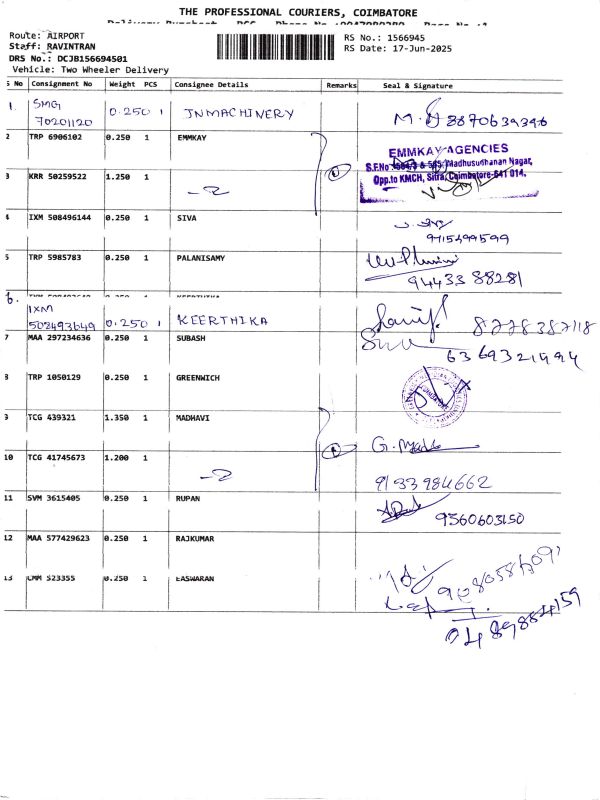 THE PROFESSIONAL COURIERS, COIMBATORE
Route: AIRPORT
Staff: RAVINTRAN
DRS No.: DCJB156694501
Vehicle: Two Wheeler Delivery
RS No.: 1566945
RS Date: 17-Jun-2025
S No Consignment No Weight PCS Consignee Details Remarks Seal & Signature
1. SMG 70201120 0.250 1 INMACHINERY 8870639396
2 TRP 6906102 0.250 1 EMMKAY
EMMKAY AGENCIES
S.F.No Madhusudhanan Nagar,
Opp.to KMCH, Sitra, Coimbatore-641 014.
3 KRR 50259522 1.250 1 -2-
4 IXM 508496144 0.250 1 SIVA
9715499599
5 TRP 5985783 0.250 1 PALANISAMY
94433 88281
6. IXM 502493649 0.250 1 KEERTHIKA 8778387118
7 MAA 297234636 0.250 1 SUBASH
8 TRP 1050129 0.250 1 GREENWICH
9 TCG 439321 1.350 1 MADHAVI
10 TCG 41745673 1.200 1 -2
9133984662
11 SVM 3615405 0.250 1 RUPAN
9360603150
12 MAA 577429623 0.250 1 RAJKUMAR
13 CMM 523355 0.250 1 EASWARAN